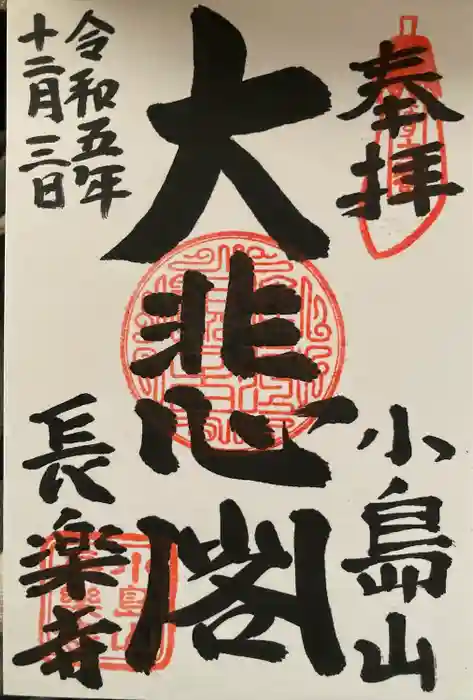 奉拝
小島山
大悲閣
令和五年
十二月三日
長楽寺